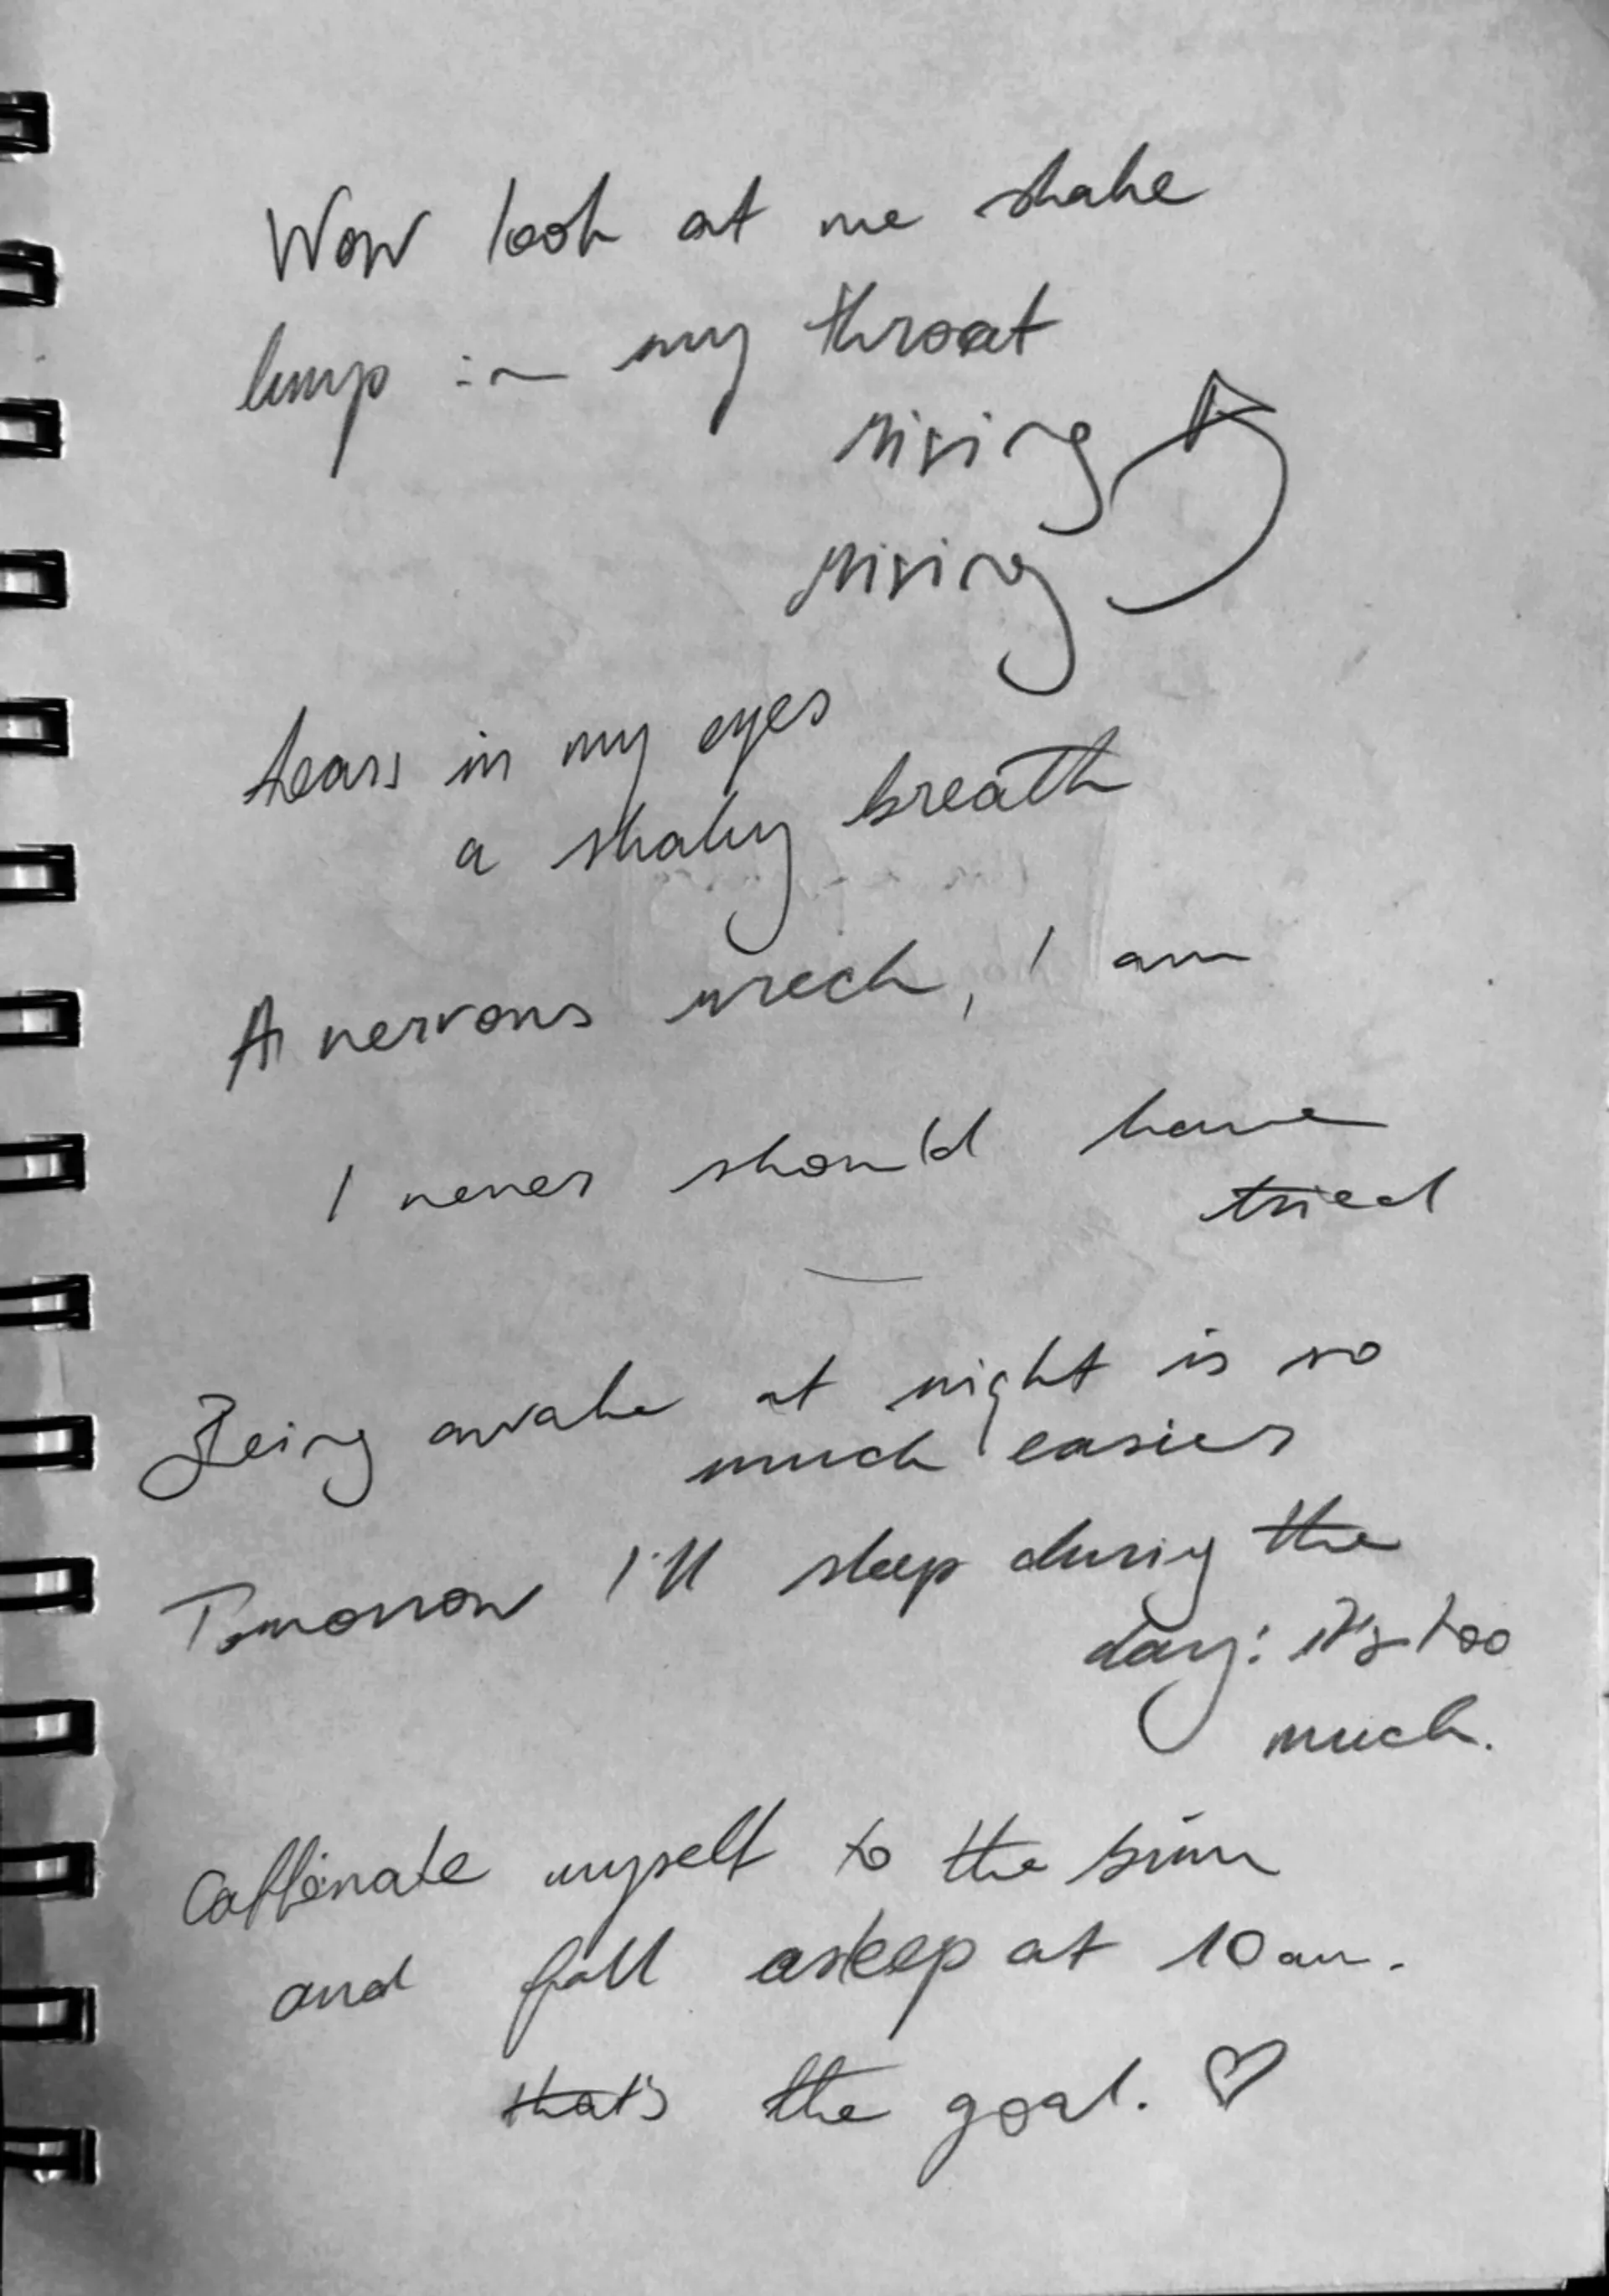 Wow look at me shake
lump in my throat
rising
rising
tears in my eyes
a shaky breath
A nervous wreck, I am
I never should have
tried
Being awake at night is so
much easier
Tomorrow I'll sleep during the
day: it's too
much.
Caffeinate myself to the brim
and fall asleep at 10am.
that's the goal. ♡